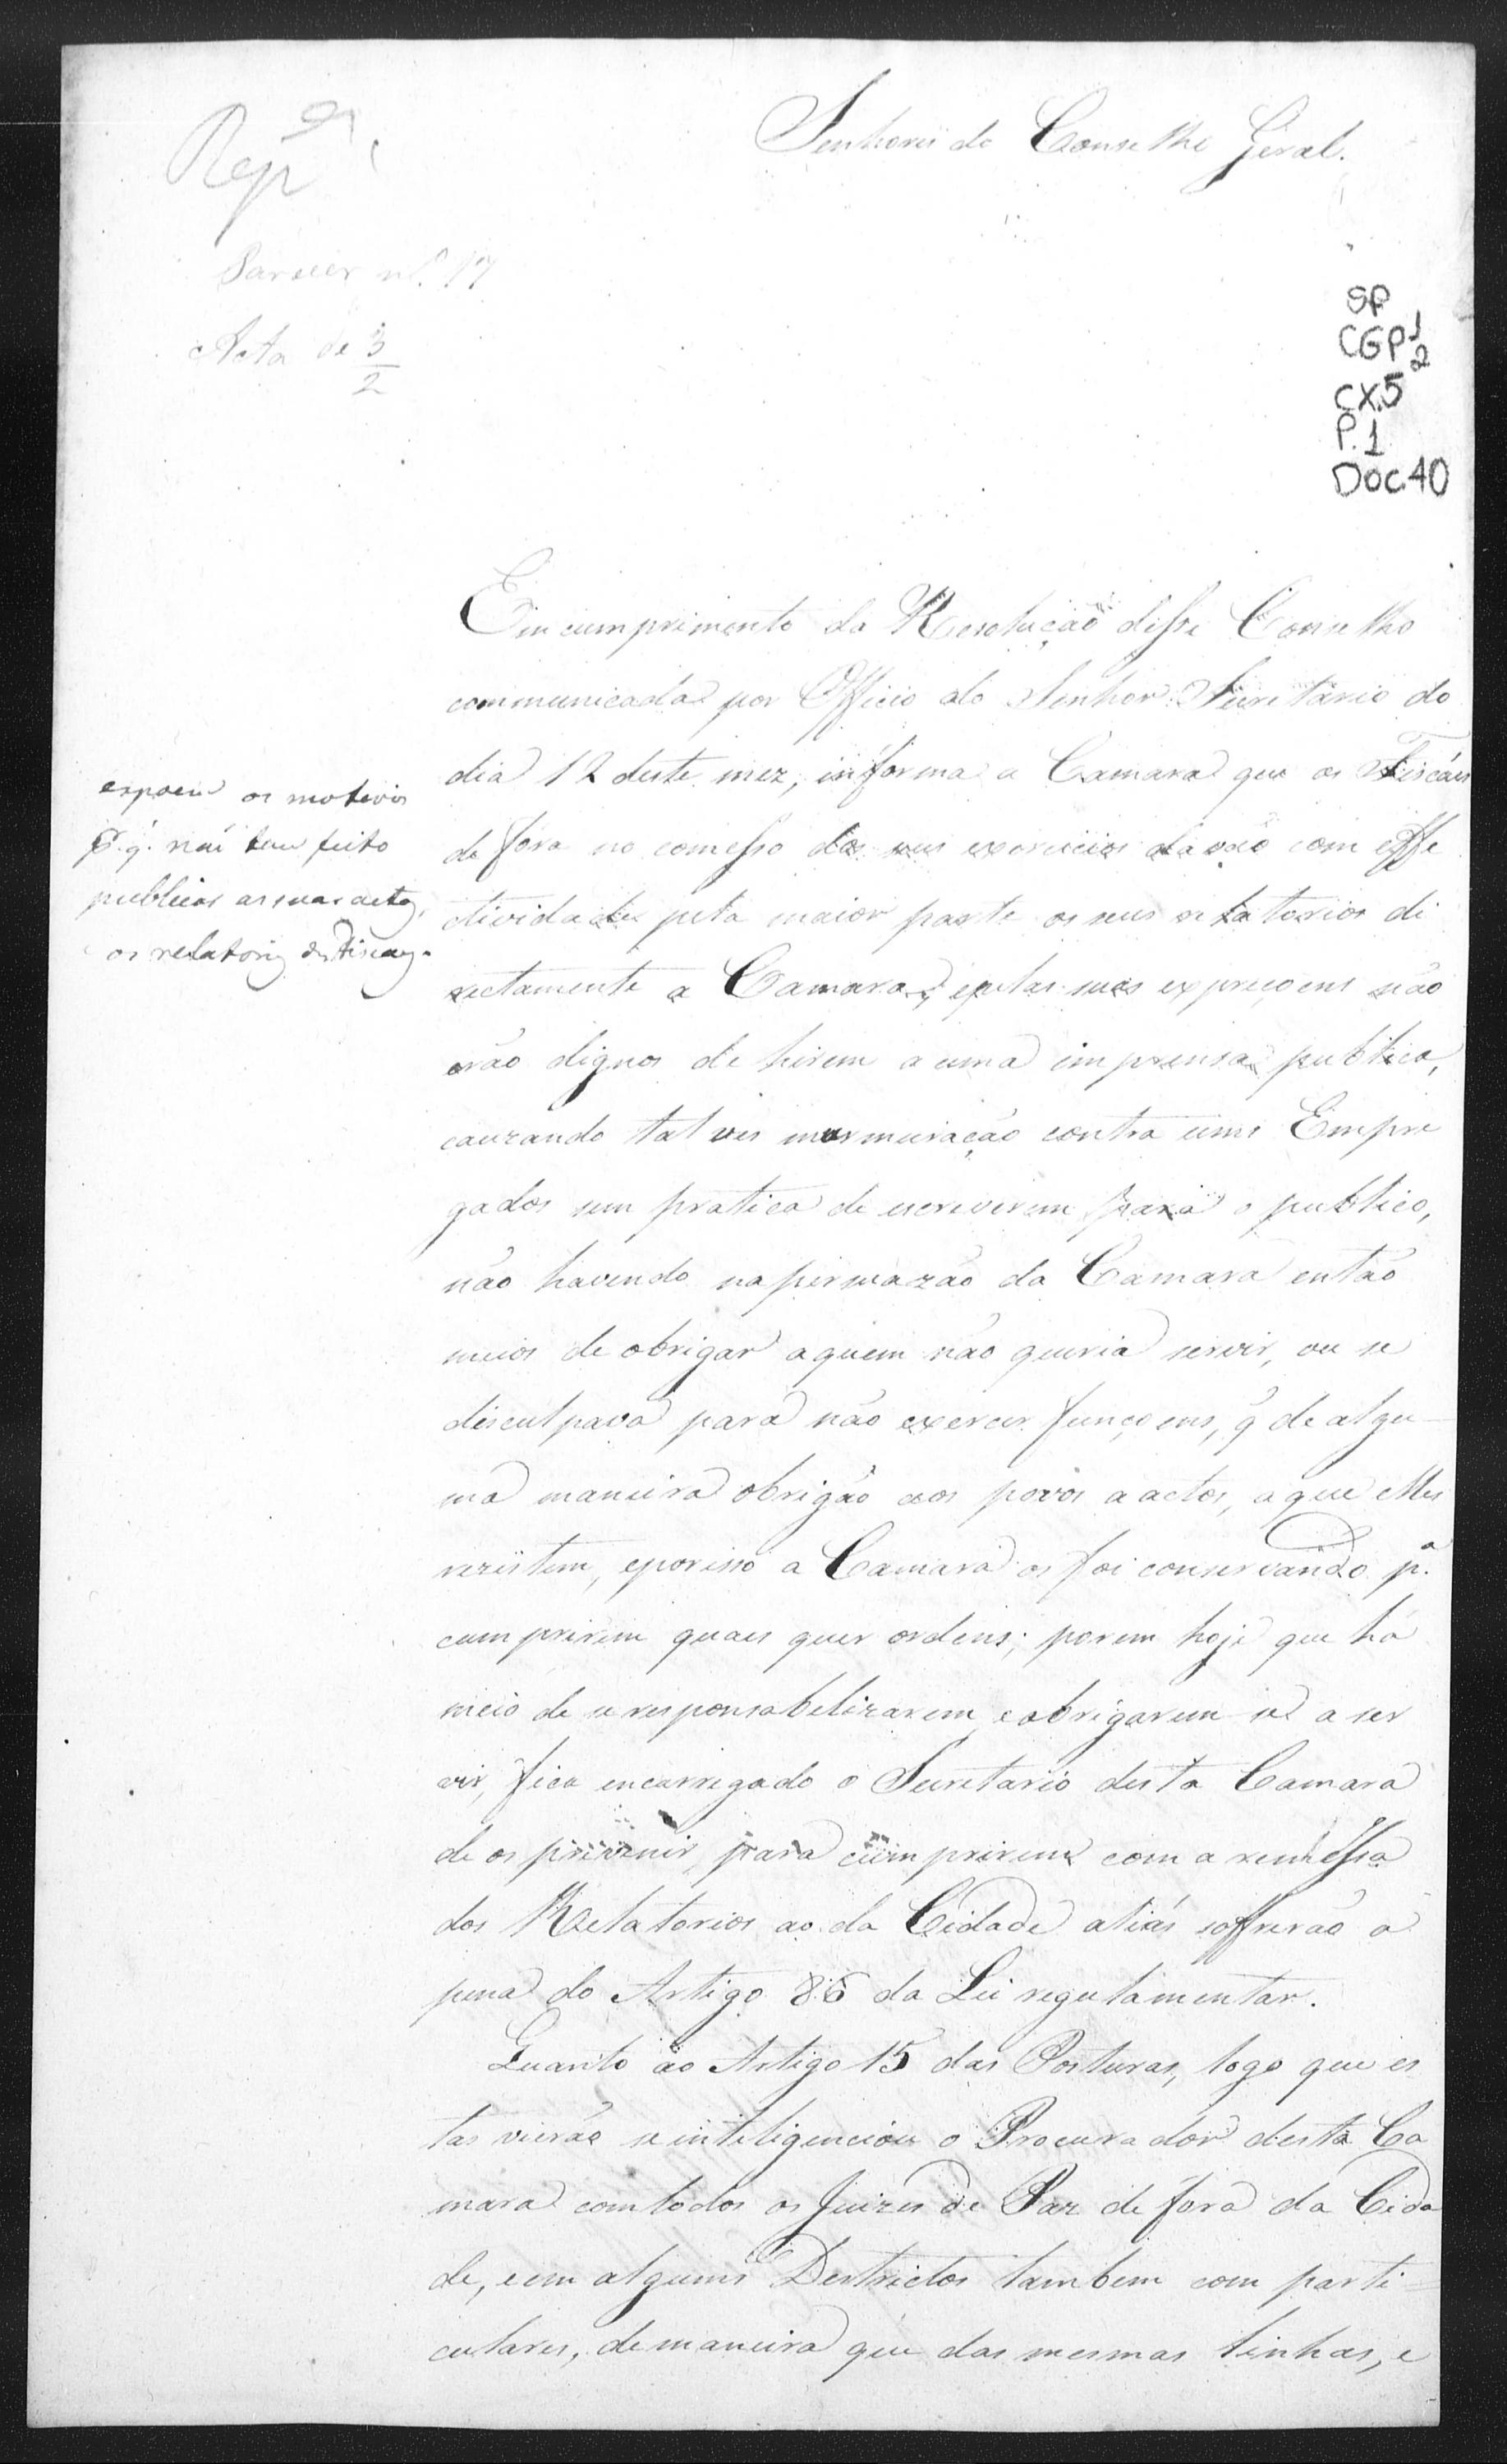 Senhores do Conselho Geral.
Rep.ᵃᵐ
Parecer nº. 17
Acta de 3/2
SP
CGP1
2
CX.5
P.1
Doc.40
Em cumprimento da Resolução desse Conselho
communicada por Officio do Senhor Secretario do
dia 12 deste mez, informa a Camara que os Fiscáes
de fora no comesso dos seus exercicios davão com effe
ctividade pela maior parte os seus relatorios di
rectamente a Camara, e pelas suas expreçoens não
erão dignos de hirem a uma imprensa publica,
cauzando tal ves murmuração contra uns Empre
gados sem pratica de escreverem para o publico,
não havendo na persuazão da Camara então
meios de obrigar a quem não queria servir, ou se
disculpava para não exercer funçoens, q̃ de algu
ma maneira obrigão aos povos a actos, a que elles
rezistem, e por isso a Camara os foi conservando p.ᵃ
cumprirem quaes quer ordens; porem hoje que há
meio de se responsabelizarem, e obrigarem-se a ser
vir, fica encarregado o Secretario desta Camara
de os privenir, para cumprirem com a remessa
dos Relatorios ao da Cidade aliás soffrerão a
pena do Artigo 86 da Lei regulamentar.
Quanto ao Artigo 15 das Posturas, logo que es
tas vierão se inteligenciou o Procurador desta Ca
mara com todos os Juizes de Paz de fora da Cida
de, e em alguns Destrictos tambem com parti=
culares, de maneira que das mesmas linhas, e
expoem os motivos
p.r q. não tem feito
publicar as suas actas,
os relatorios dos Fiscaes.